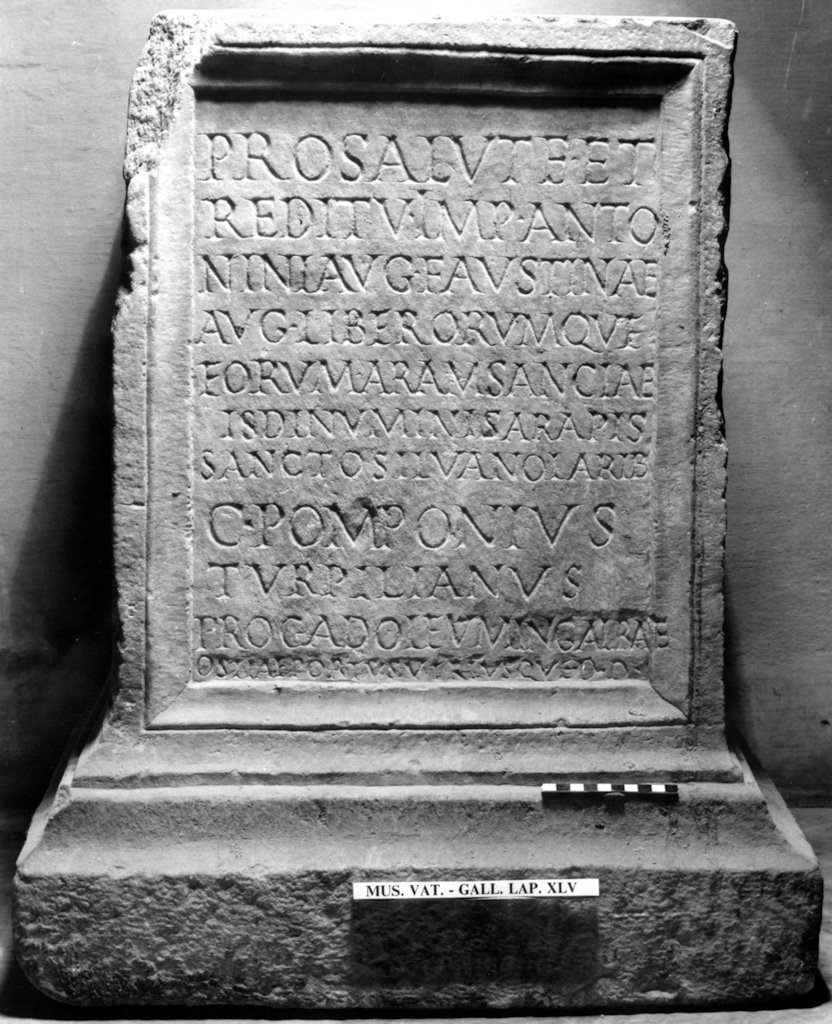 PRO SALVTE·ET
REDITV·IMP·ANTO
NINI AVG FAVSTINAE
AVG·LIBERORVMQVE
EORVM·ARAM SANCTAE
ISIDI NVMINI SARAPIS
SANCTO SILVANO LARIB
C·POMPONIVS
TVRPILIANVS
PROC AD OLEVM IN GALBAE
OSTIAE PORTVS VTRIVSQVE D D
MUS. VAT. - GALL. LAP. XLV